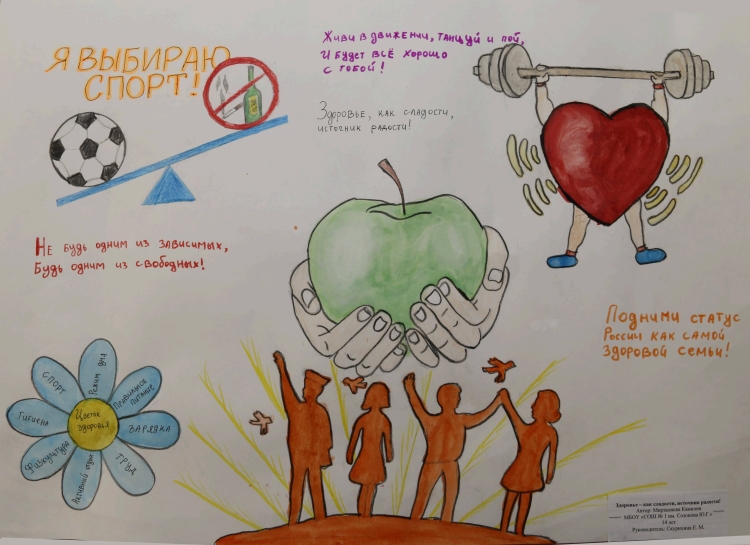 Я ВЫБИРАЮ
СПОРТ!
Живи в движении, танцуй и пой,
И будет всё хорошо
с тобой!
Здоровье, как сладости,
источник радости!
Не будь одним из зависимых,
Будь одним из свободных!
Подними статус
России как самой
Здоровой семьи!
Цветок
здоровья
Спорт
Режим дня
Правильное
питание
ЗАРЯДКА
ТРУД
Активный отдых
Физкультура
Гигиена
Здоровье – как сладости, источник радости!
Автор:
МБОУ «СОШ № 1 им. Созонова Ю.Г.»
14 лет
Руководитель: Скурихина Е. М.